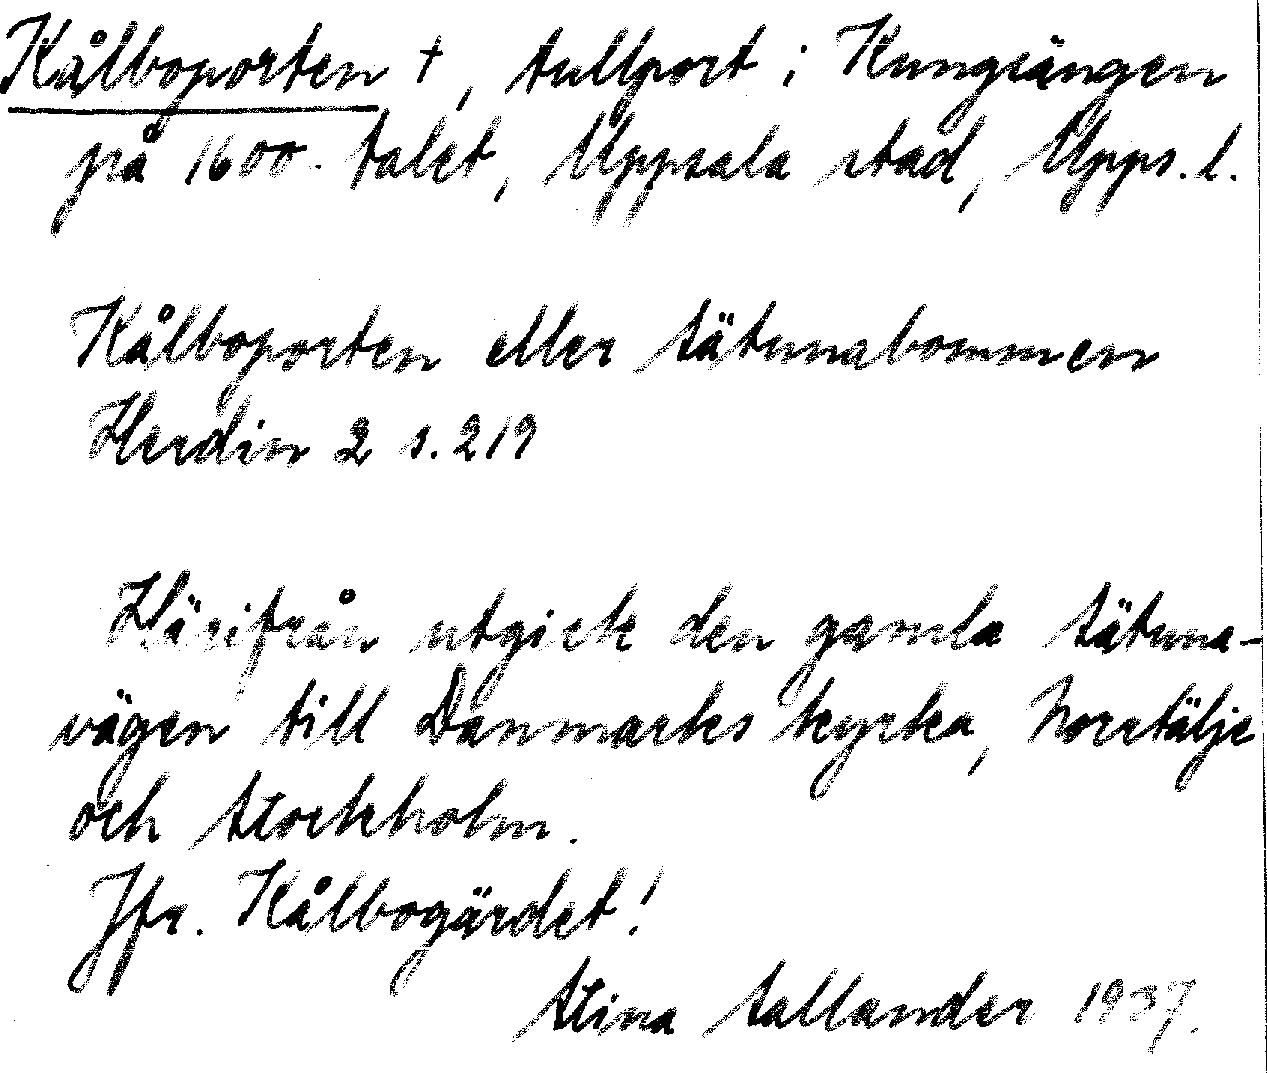 Kålboporten †, tullport i Kungsängen
på 1600-talet, Uppsala stad, Upps. l.
Kålboporten eller Sätunabommen
Herdin 2 s. 219
Härifrån utgick den gamla Sätuna-
vägen till Danmarks kyrka, Norrtälje
och Stockholm.
Jfr. Kålbogärdet!
Stina Sallander 1937.